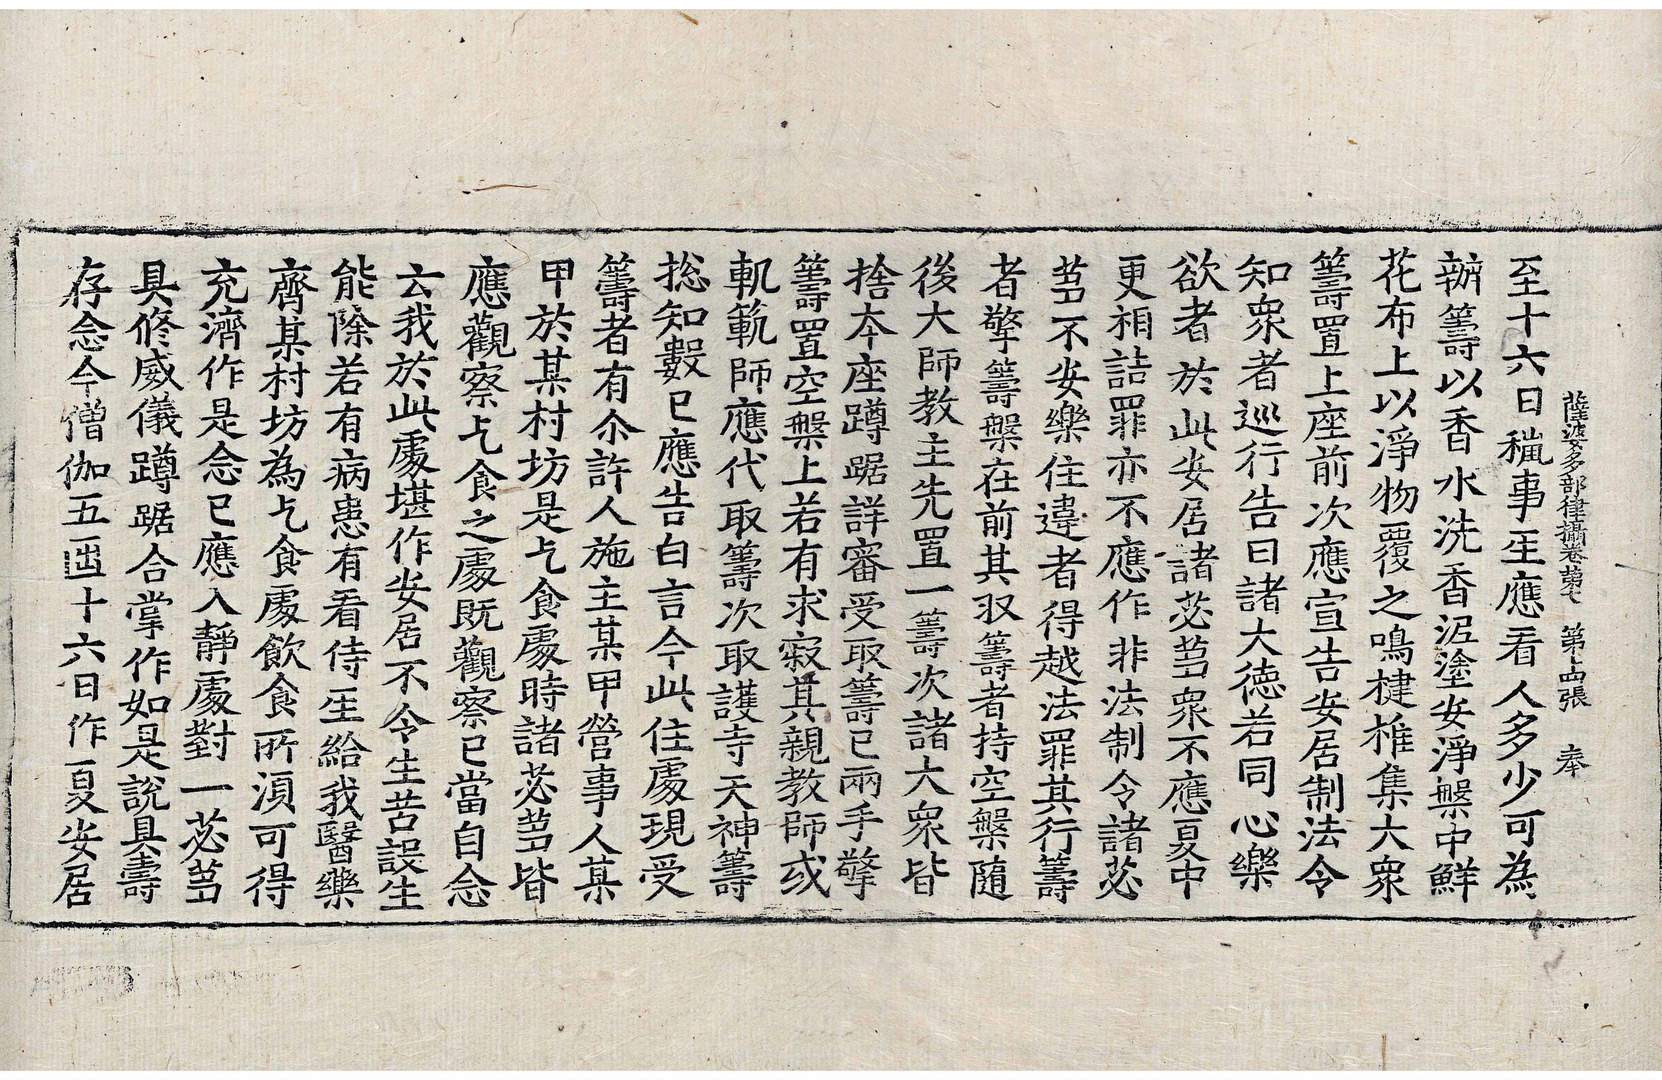 薩婆多部律攝卷第七　第古張　奉
至十六日𥠖事𤯔應看人多少可為
辦籌以香水洗香泥塗安淨槃中鮮
花布上以淨物覆之鳴揵椎集大衆
籌置上座前次應宣告安居制法令
知衆者巡行告曰諸大德若同心樂
欲者於此安居諸苾芻衆不應夏中
更相詰罪亦不應作非法制令諸苾
芻不安樂住違者得越法罪其行籌
者擎籌槃在前其収籌者持空槃隨
後大師教主先置一籌次諸大衆皆
捨本座蹲踞詳審受取籌已兩手擎
籌置空槃上若有求寂其親教師或
軌範師應代取籌次取護寺天神籌
捴知數已應告白言今此住處現受
籌者有尒許人施主某甲營事人某
甲於某村坊是乞食處時諸苾芻皆
應觀察乞食之處既觀察已當自念
云我於此處堪作安居不令生苦設生
能除若有病患有看侍𤯔給我醫藥
齊某村坊為乞食處飲食所須可得
充濟作是念已應入靜處對一苾芻
具修威儀蹲踞合掌作如是說具壽
存念今僧伽五𡆠十六日作夏安居